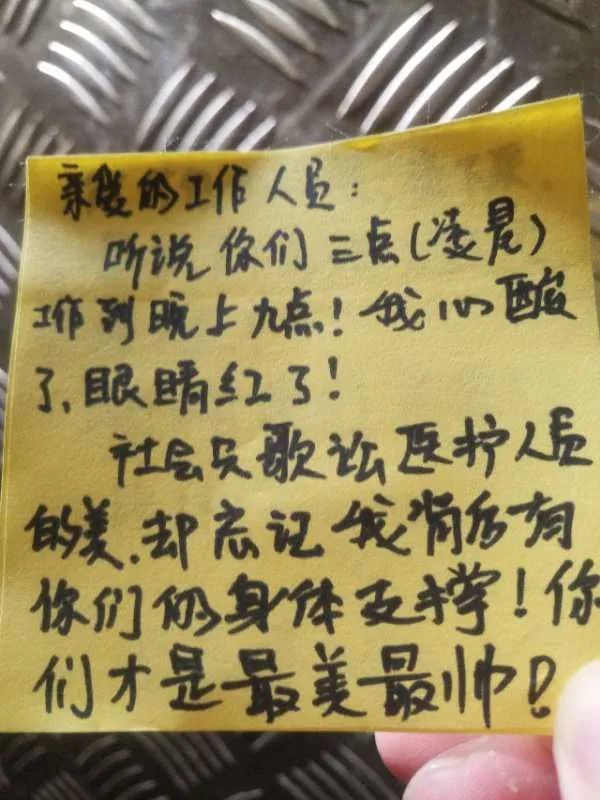 亲爱的工作人员：
听说你们三点(凌晨)
工作到晚上九点！我心酸
了,眼睛红了！
社会只歌讼医护人员
的美,却忘记我背后有
你们的身体支撑！你
们才是最美最帅！